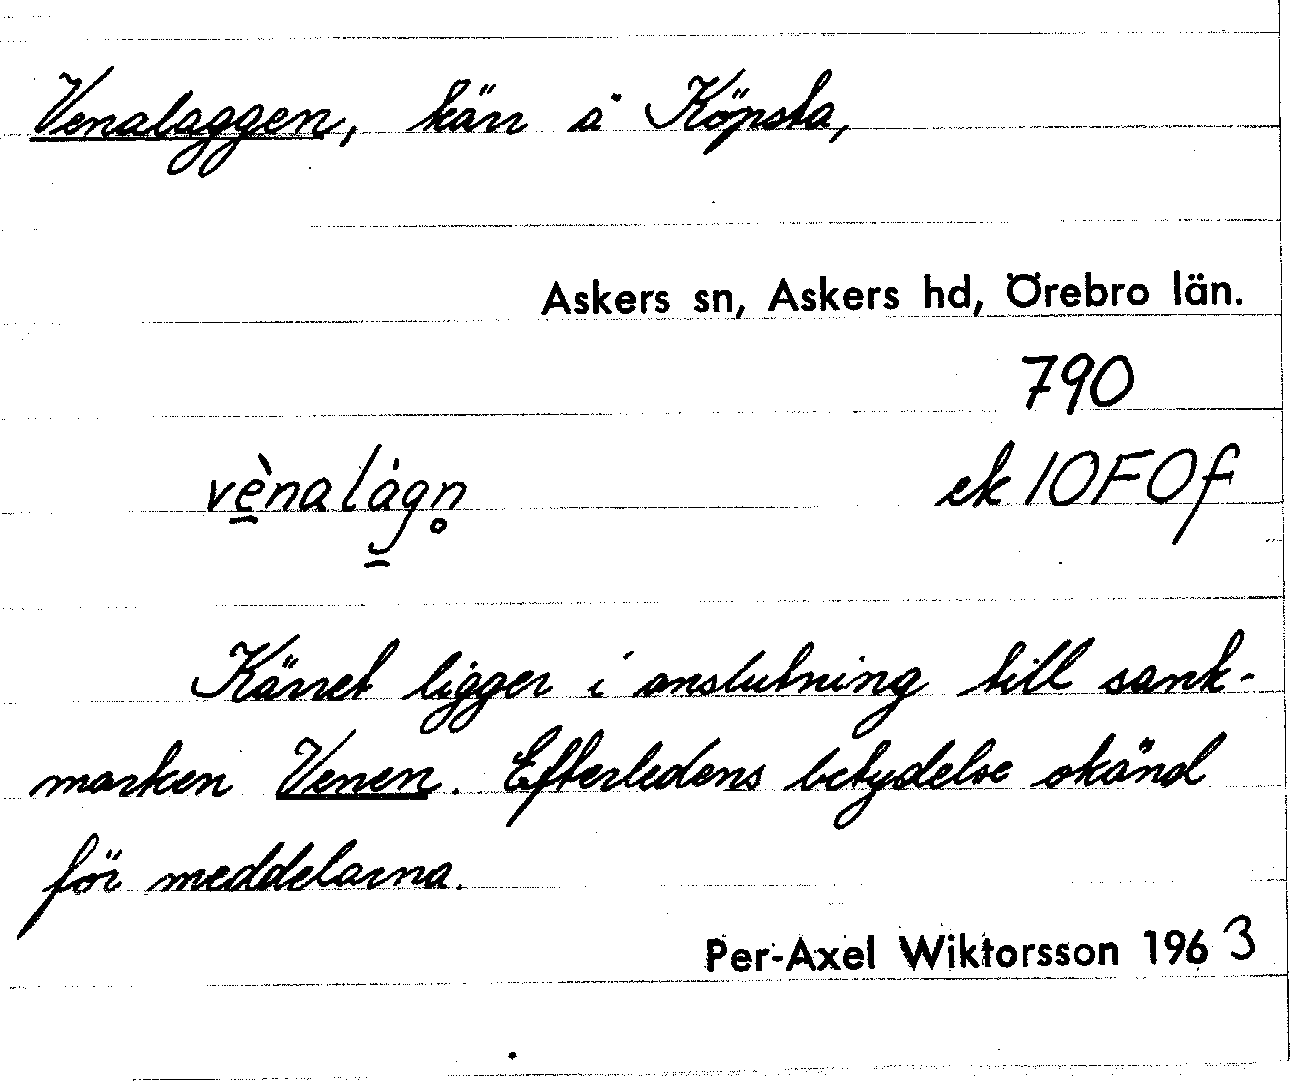 Venalaggen, kärr å Köpsta,
Askers sn, Askers hd, Örebro län.
790
vè̱nalág̱n̥ ek 10F0f
Kärret ligger i anslutning till sank-
marken Venen. Efterledens betydelse okänd
för meddelarna.
Per-Axel Wiktorsson 1963